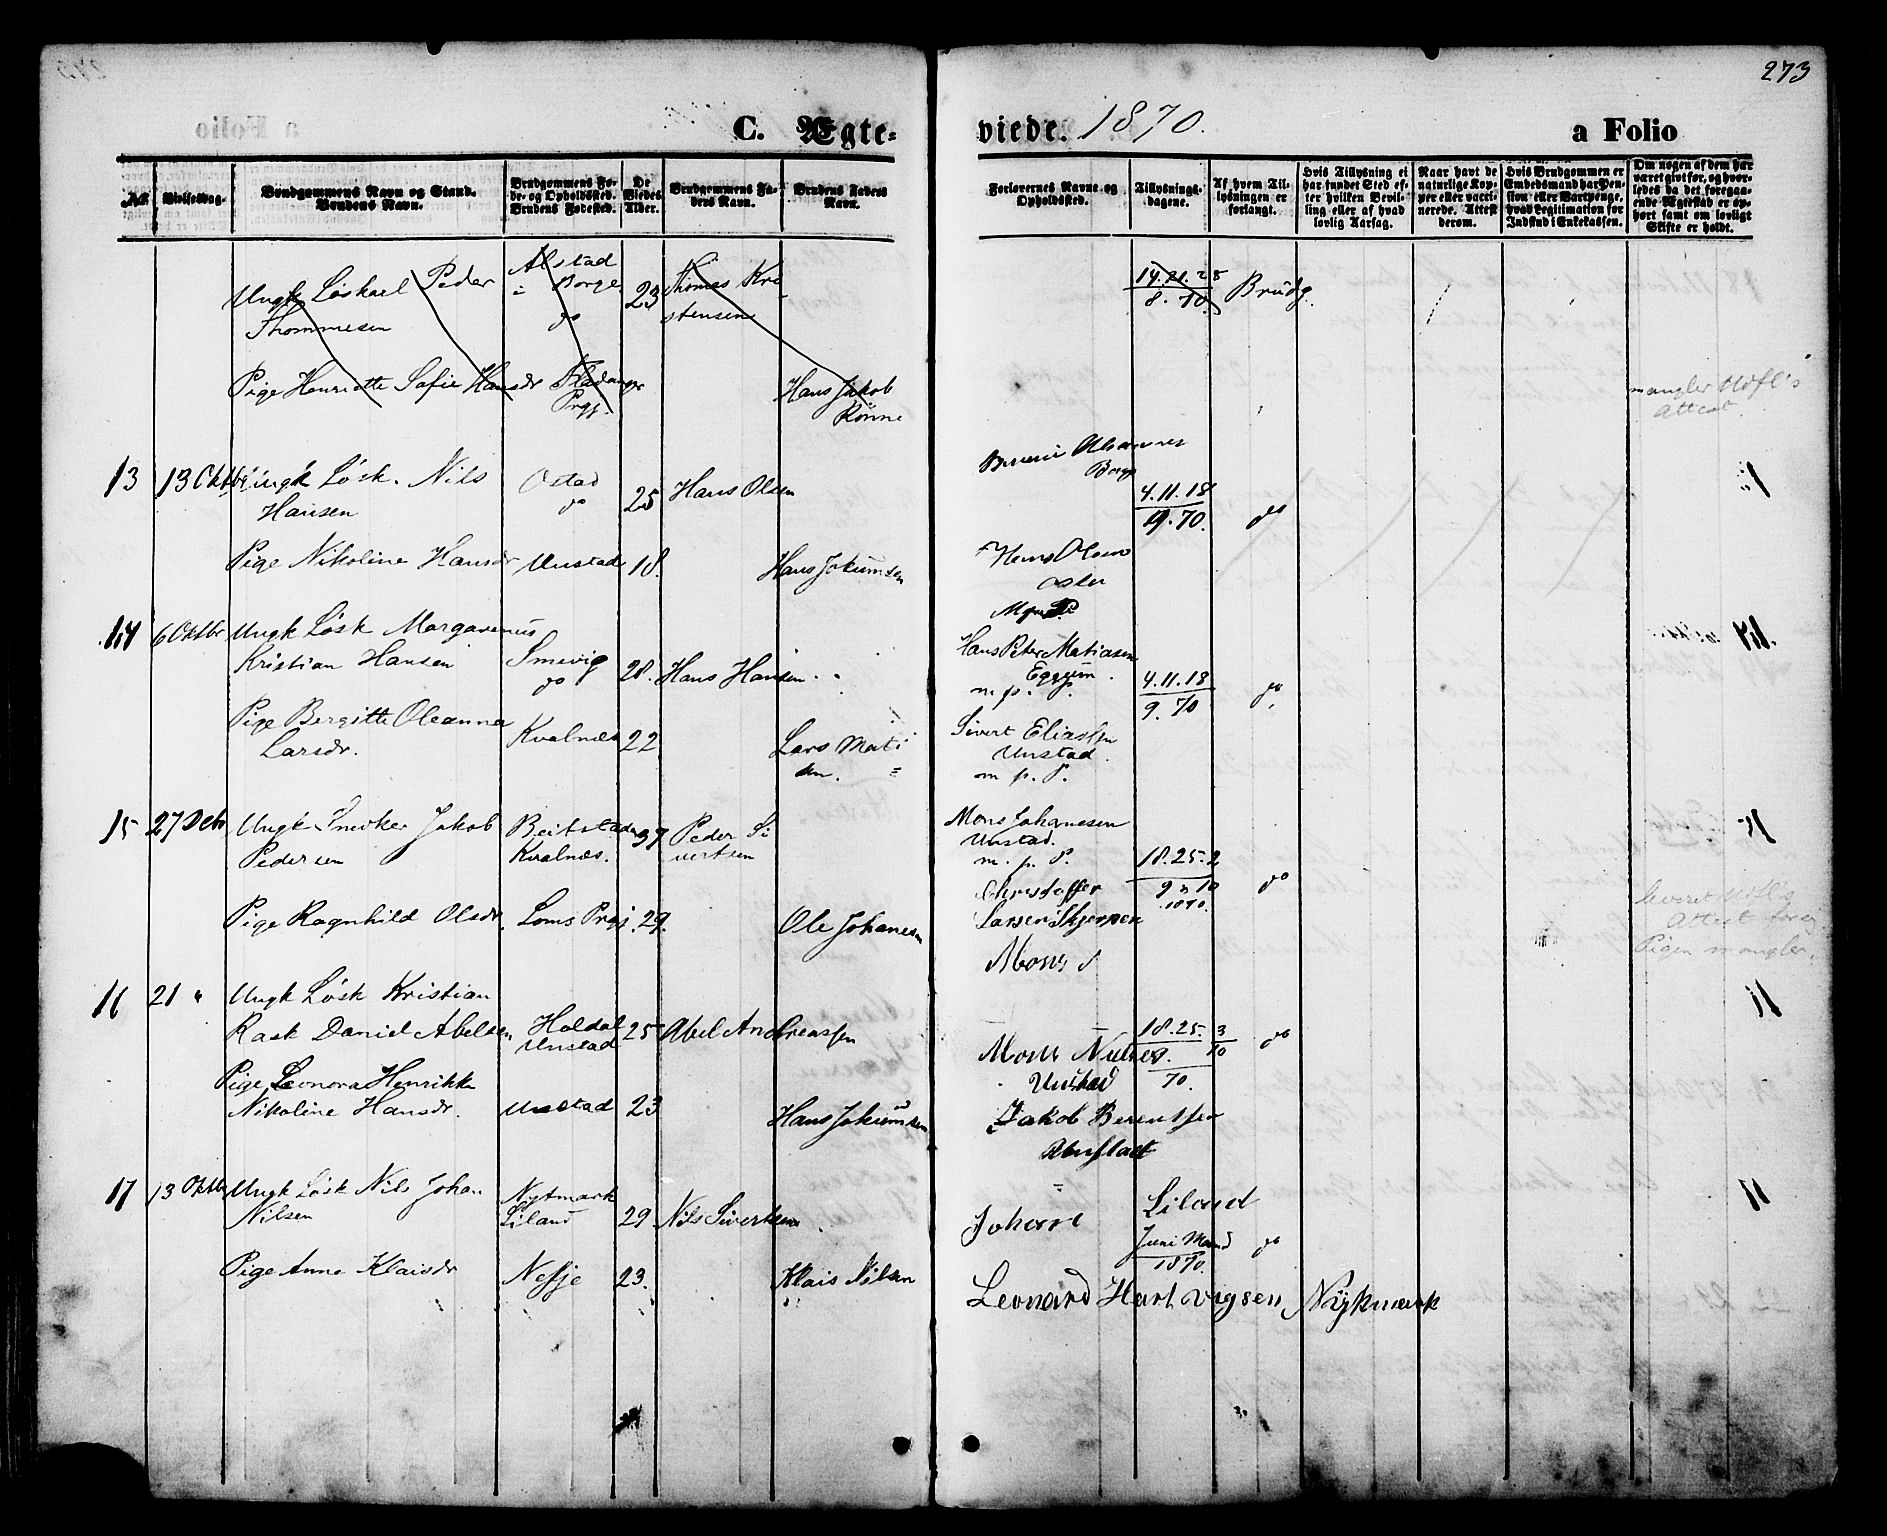 273
C. Ægte-
viede. 1870.
a Folio
No.
Vielsesdag.
Brudgommens Navn og Stand.
Brudens Navn.
Brudgommens Fø-
de- og Opholdssted.
Brudens Fødested.
De
Viedes
Alder.
Brudgommens Fa-
ders Navn.
Brudens Faders
Navn.
Forlovernes Navne og
Opholdssted.
Tillysnings-
dagene.
Af hvem Til-
lysningen er
forlangt.
Hvis Tillysning ei
har fundet Sted ef-
ter hvilken Bevil-
ling eller af hvad
lovlig Aarsag.
Naar havt de
naturlige Kop-
per eller vacci-
nerede. Attest
derom.
Hvis Brudgommen er
Embedsmand har Pen-
sion eller Vartpenge,
hvad Legitimation for
Indskud i Enkekassen.
Om nogen af dem har
været gift før, og hvor-
ledes da det foregaa-
ende Ægteskab er op-
hørt samt om lovligt
Skifte er holdt.
Ungk Løskarl Peder
Thommesen
Alstad
i Borge
do
23
Thomas Kri
stensen
14.21.28
8. 70
Brudg.
Pige Henriette Sofie Hansdr
Fladanger
Prgj.
Hans Jakob
Rönne
mangler
Attest.
13
13 Oktbr
Ungk Løsk. Nils
Hansen
Ostad
do
25
Hans Olsen
Borge
4.11.18
9.70.
do
Pige Nikoline Hansdr
Unstad
18.
Hans Jokumsen
Hans Olsen
14
6 Oktbr
Ungk Løsk Margarenus
Kristian Hansen
Smevig
do
28.
Hans Hansen
Hans Peter Matiasen
Eggum
m. p. P.
4.11.18
9. 70
do
Pige Bergitte Oleanna
Larsdr.
Kvalnæs
22
Lars Mati
sen.
Sivert Eliassen
Unstad
m. p. P.
15
27 Decbr
Ungk Snedker Jakob
Pedersen
Beitstaden
Kvalnæs.
37
Peder Si
vertsen
Mons Johanesen
Unstad.
m. p. P.
18.25.2
9 10
1870.
do
Pige Ragnhild Olsdr.
Loms Prgj.
29.
Ole Johanesen
Christoffer
Larsen Skjerpen
leveret
Attest for
Pigen mangler.
16
21 "
Ungk Løsk Kristian
Rask Daniel Abelsen
Holdal
Unstad
25
Abel Andreassen
Mons Nielsen
Unstad
18.25. 3
9. 10
70.
do
Pige Leonora Henrikke
Nikoline Hansdr.
Unstad
23
Hans Jokumsen
Jakob Berentsen
Unstad
17
13 Oktbr
Ungk Løsk Nils Johan
Nilsen
Nykmark
Liland
29
Nils Sivertsen
Johan Liland
Juni Maaned
1870.
do
Pige Anne Klaisdr
Nesje
23.
Klais Nilsen
Leonard Hartvigsen Nykmark